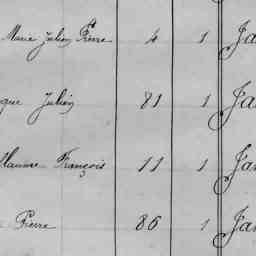 Marie Julien Pierre 4 1 Ja
que Julien 81 1 Ja
François 11 1 Jan
Pierre 86 1 Jan